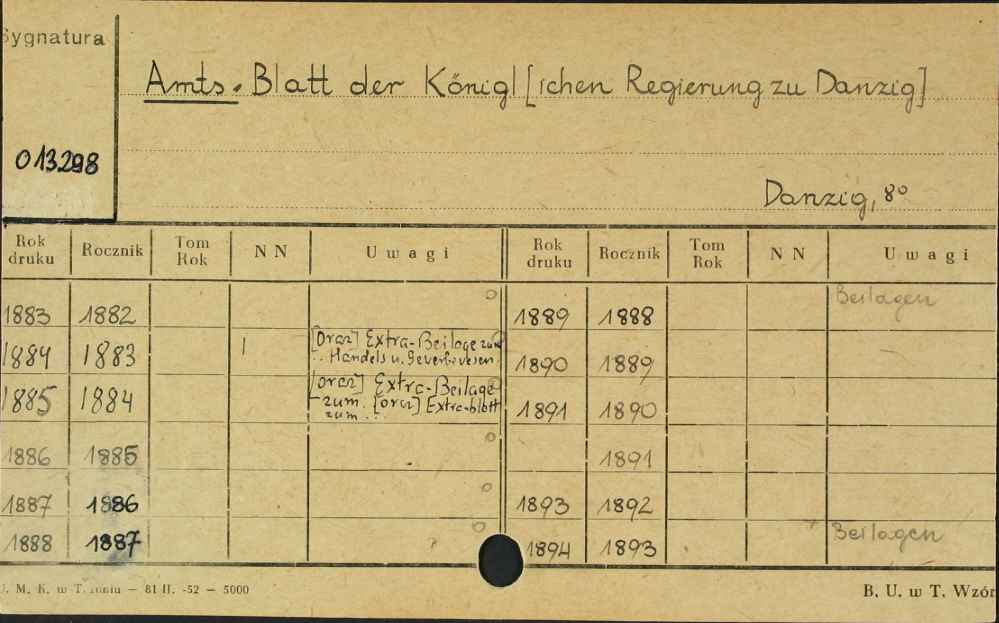 Sygnatura
Amts-Blatt der Königl[ichen Regierung zu Danzig]
013298
Danzig, 8°
Rok druku Rocznik Tom Rok NN Uwagi Rok druku Rocznik Tom Rok NN Uwagi
1883 1882 o 1889 1888 Beilagen
1884 1883 1 [oraz] Extra-Beilage zum
... Handels u. Gewerbwesen 1890 1889
1885 1884 [oraz] Extra-Beilage
zum [oraz] Extra-blatt
zum ... 1891 1890
1886 1885 o 1891
1887 1886 o 1893 1892
1888 1887 o 1894 1893 Beilagen
U. M. K. w Toruniu — 81 II. -52 — 5000 B. U. w T. Wzór